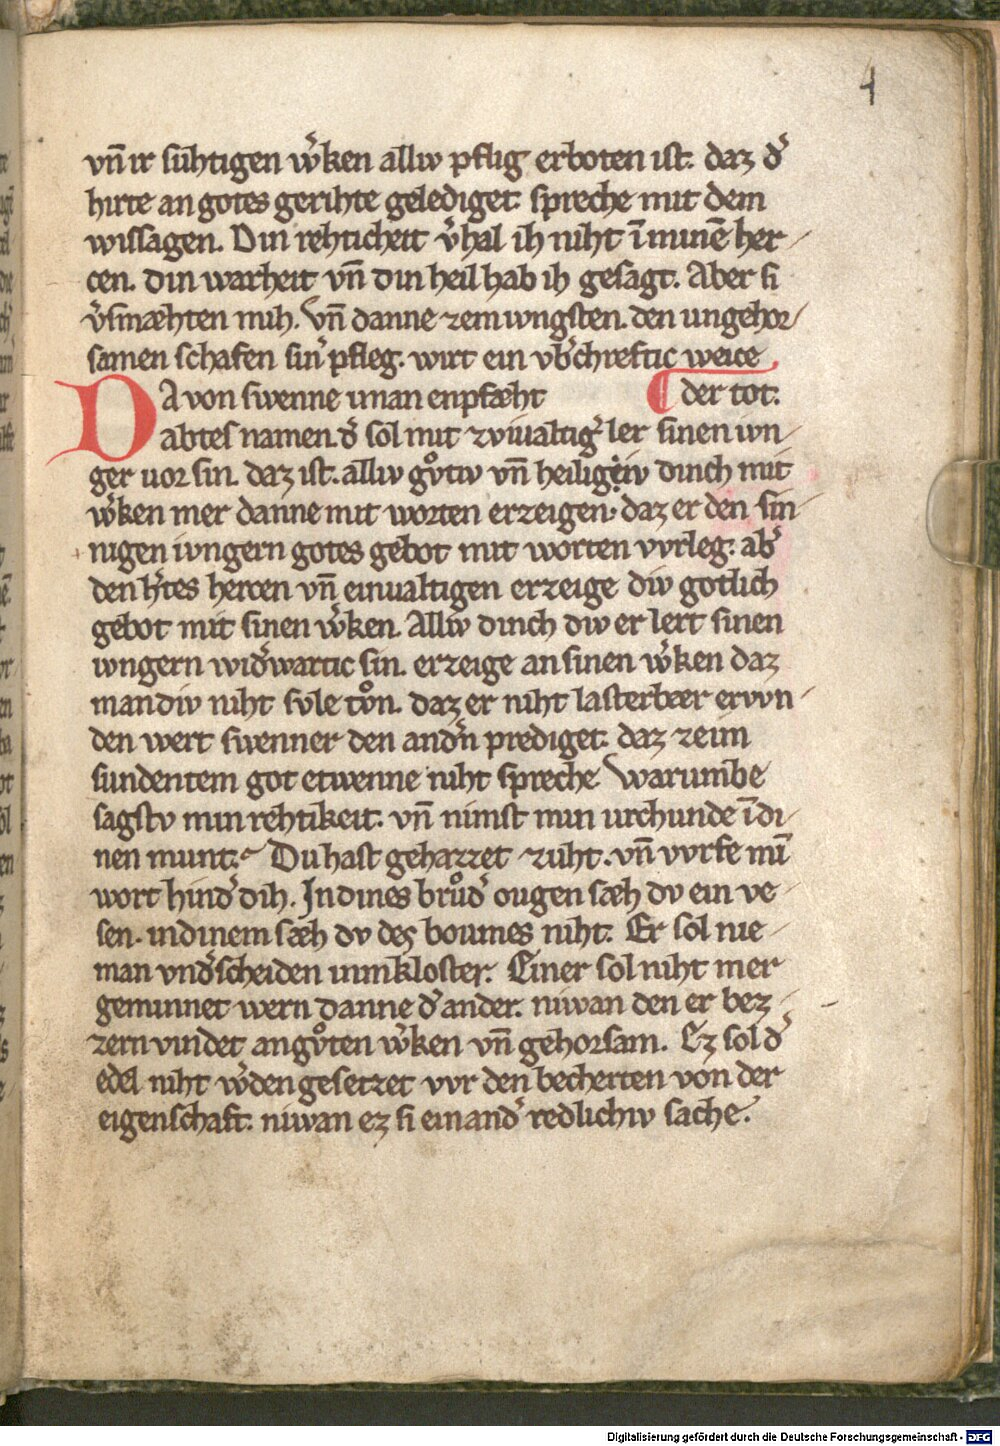 4
vn̄ ir sühtigen w̓ken alliv pflig erboten ist. daz d̓
hirte an gotes gerihte gelediget. spreche mit dem
wissagen. Din rehticheit v̓hal ih niht ī minē her
cen. din warheit vn̄ din heil hab ih gesagt. Aber si
v̓smæhten mih. Vn̄ danne zem ivngsten. den ungehor
samen schafen sin̓ pfleg. wirt ein vb̓chreftic weice
der tot.
DA von swenne iman enpfæht
abtes namen. d̓ sol mit zviualtig̓ ler sinen ivn
ger uor sin. daz ist. alliv gv̊tiv vn̄ heiligiv dinch mit
w̓ken mer danne mit worten erzeigen. daz er den sin
nigen ivngern gotes gebot mit worten vvrleg. ab̓
den h̓tes hercen vn̄ einualtigen erzeige div gotlich
gebot mit sinen w̓ken. Alliv dinch div er lert sinen
ivngern wid̓wartic sin. erzeige an sinen w̓ken daz
man div niht svle tv̊n. daz er niht lasterbær ervvn
den wert swenner den and̓n prediget. daz zeim
sundentem got etwenne niht spreche Warumbe
sagstv min rehtikeit. vn̄ nimst min urchunde ī di
nen munt. Du hast gehazzet zuht. vn̄ vvrfe minī
wort hind̓ dih. In dines brůd̓ ougen sæh dv ein ve
sen. in dinem sæh dv des boumes niht. Er sol nie
man vnd̓scheiden inmkloster. Einer sol niht mer
geminnet wern danne d̓ ander. niwan den er bez
zern vindet an gv̊ten w̓ken vn̄ gehorsam. Ez sol d̓
edel niht w̓den gesetzet vvr den becherten von der
eigenschaft. niwan ez si ein and̓ redlichiv sache.
Digitalisierung gefördert durch die Deutsche Forschungsgemeinschaft - DFG